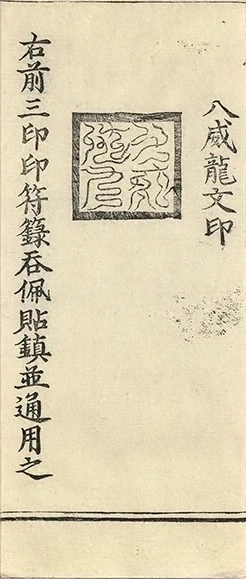 八威龍文印
右前三印印符籙吞佩貼鎮並通用之